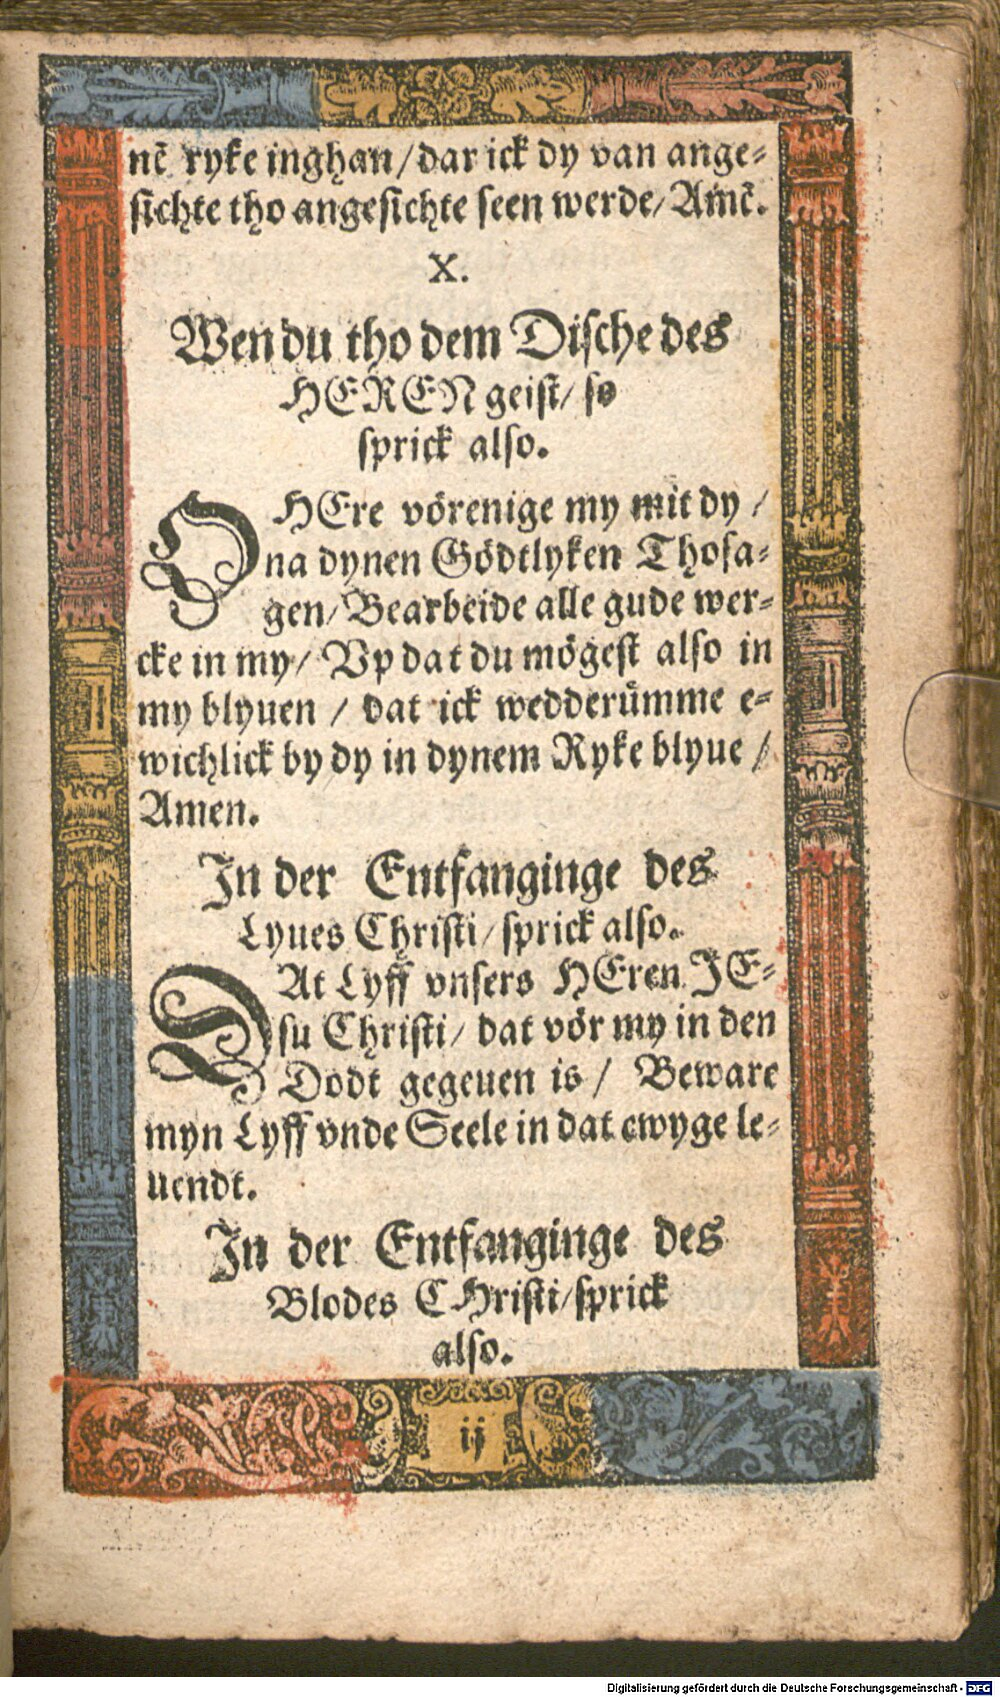 nē ryke inghan/dar ick dy van ange⸗
sichte tho angesichte seen werde/Amē.
X.
Wen du tho dem Dische des
HEREN geist/ so
sprick also.
O HEre vörenige my mit dy /
na dynen Gödtlyken Thosa⸗
gen/Bearbeide alle gude wer⸗
cke in my/ Vp dat du mögest also in
my blyuen / dat ick wedderümme e⸗
wichlick by dy in dynem Ryke blyue /
Amen.
In der Entfanginge des
Lyues Christi/sprick also.
DAt Lyff vnsers HEren JE⸗
su Christi/ dat vör my in den
Dodt gegeuen is / Beware
myn Lyff vnde Seele in dat ewyge le⸗
uendt.
In der Entfanginge des
Blodes CHristi/sprick
also.
ij
Digitalisierung gefördert durch die Deutsche Forschungsgemeinschaft - DFG